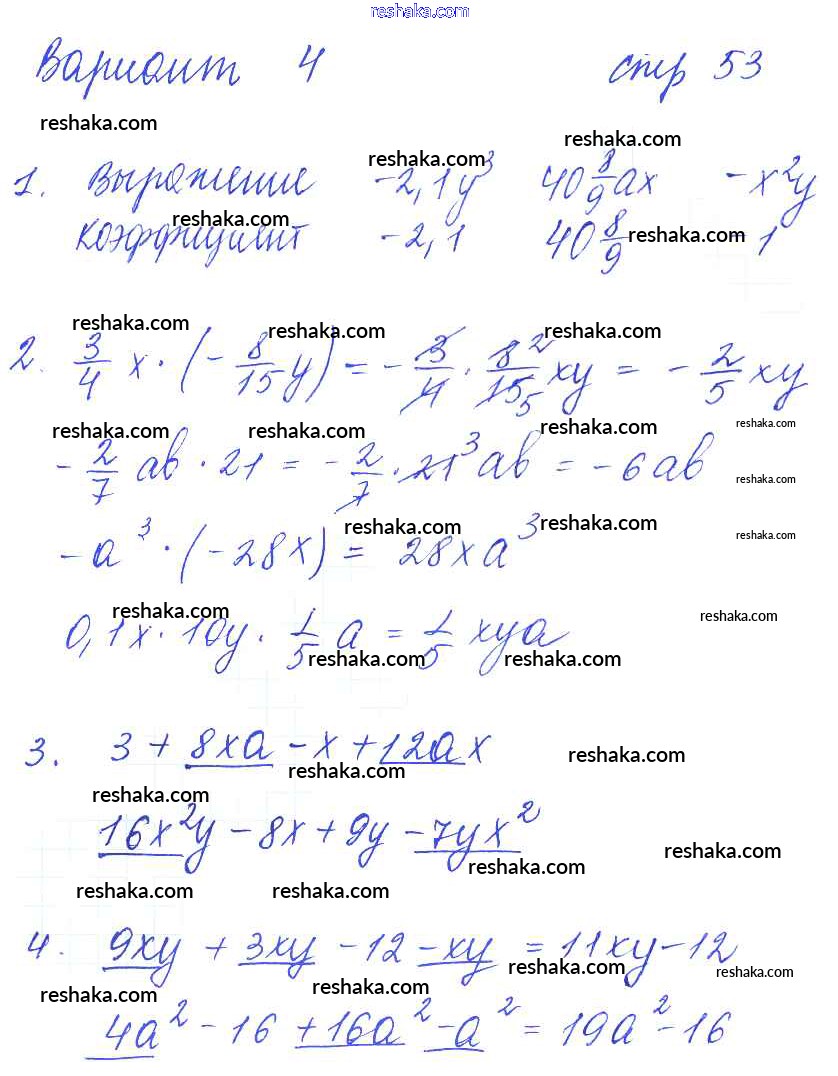 reshaka.com
Вариант 4 стр 53
reshaka.com
reshaka.com
1. Выражение -2,1y³ 40 8/9 ax -x²y
reshaka.com
коэффициент -2,1 40 8/9 reshaka.com -1
reshaka.com reshaka.com reshaka.com
2. 3/4 x · (- 8/15 y) = - 3/4 · 8²/15₅ xy = - 2/5 xy
reshaka.com reshaka.com reshaka.com reshaka.com
- 2/7 ab · 21 = - 2/7 · 21³ ab = -6ab
reshaka.com
reshaka.com reshaka.com reshaka.com
-a³ · (-28x) = 28xa³
reshaka.com reshaka.com
0,1x · 10y · 1/5 a = 1/5 xya
reshaka.com reshaka.com
3. 3 + 8xa - x + 12ax
reshaka.com reshaka.com
reshaka.com
16x²y - 8x + 9y - 7yx²
reshaka.com reshaka.com
reshaka.com reshaka.com
4. 9xy + 3xy - 12 - xy = 11xy - 12
reshaka.com reshaka.com
reshaka.com reshaka.com
4a² - 16 + 16a² - a² = 19a² - 16